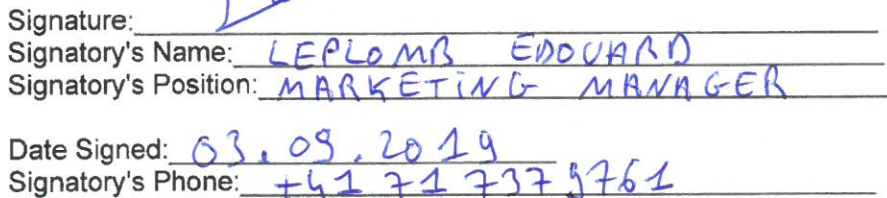 Signature:
Signatory's Name: LEPLOMB EDOUARD
Signatory's Position: MARKETING MANAGER
Date Signed: 03.09.2019
Signatory's Phone: +41 71 737 9761